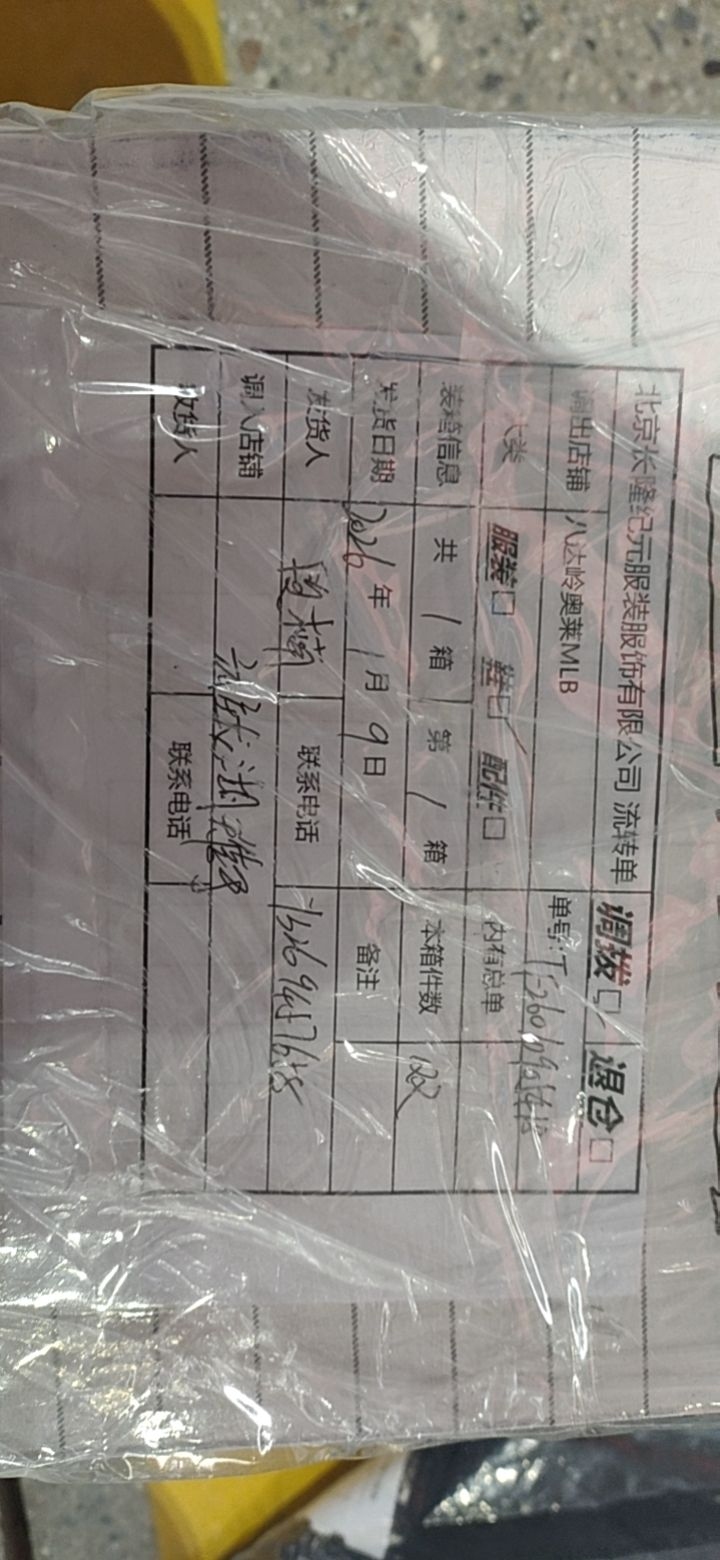 北京长隆纪元服装服饰有限公司 流转单 调拨□ 退仓□
调出店铺 八达岭奥莱MLB 单号:
大类 服装□ 鞋□ 配件□ 内有总单
装箱信息 共 1 箱 第 1 箱 本箱件数 122
发货日期 2026年 1月 9日 备注
发货人 联系电话
调入店铺
收货人 联系电话